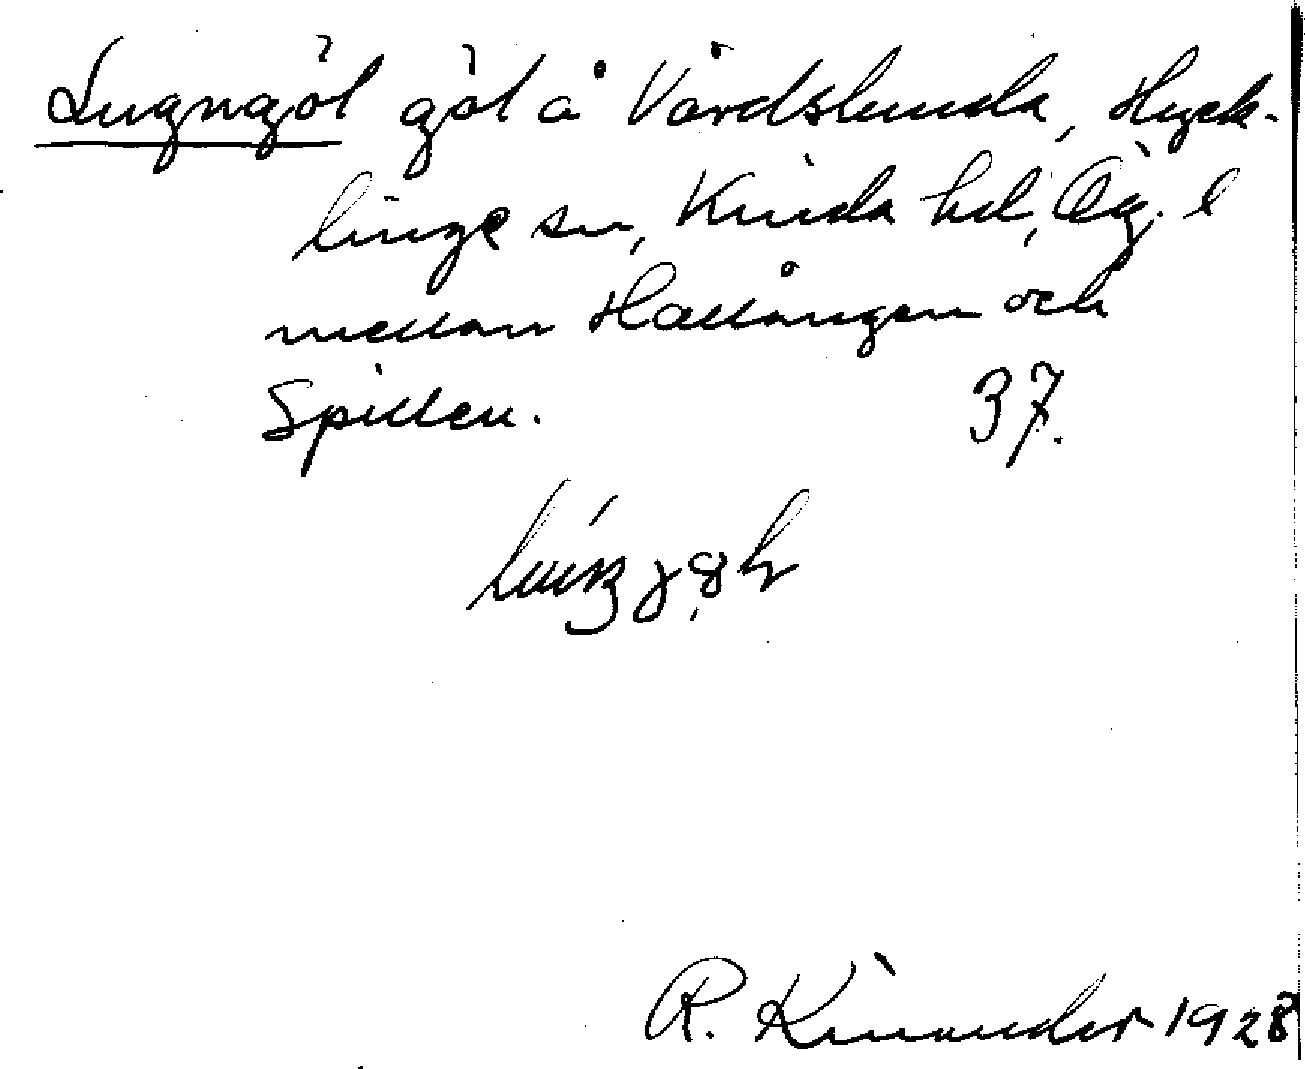 Lugngöl göl å Vårdslunda, Hyck-
linge sn, Kinda hd, Ög. l
mellan Hallången och
Spillen. 37.
R. Kinander 1928